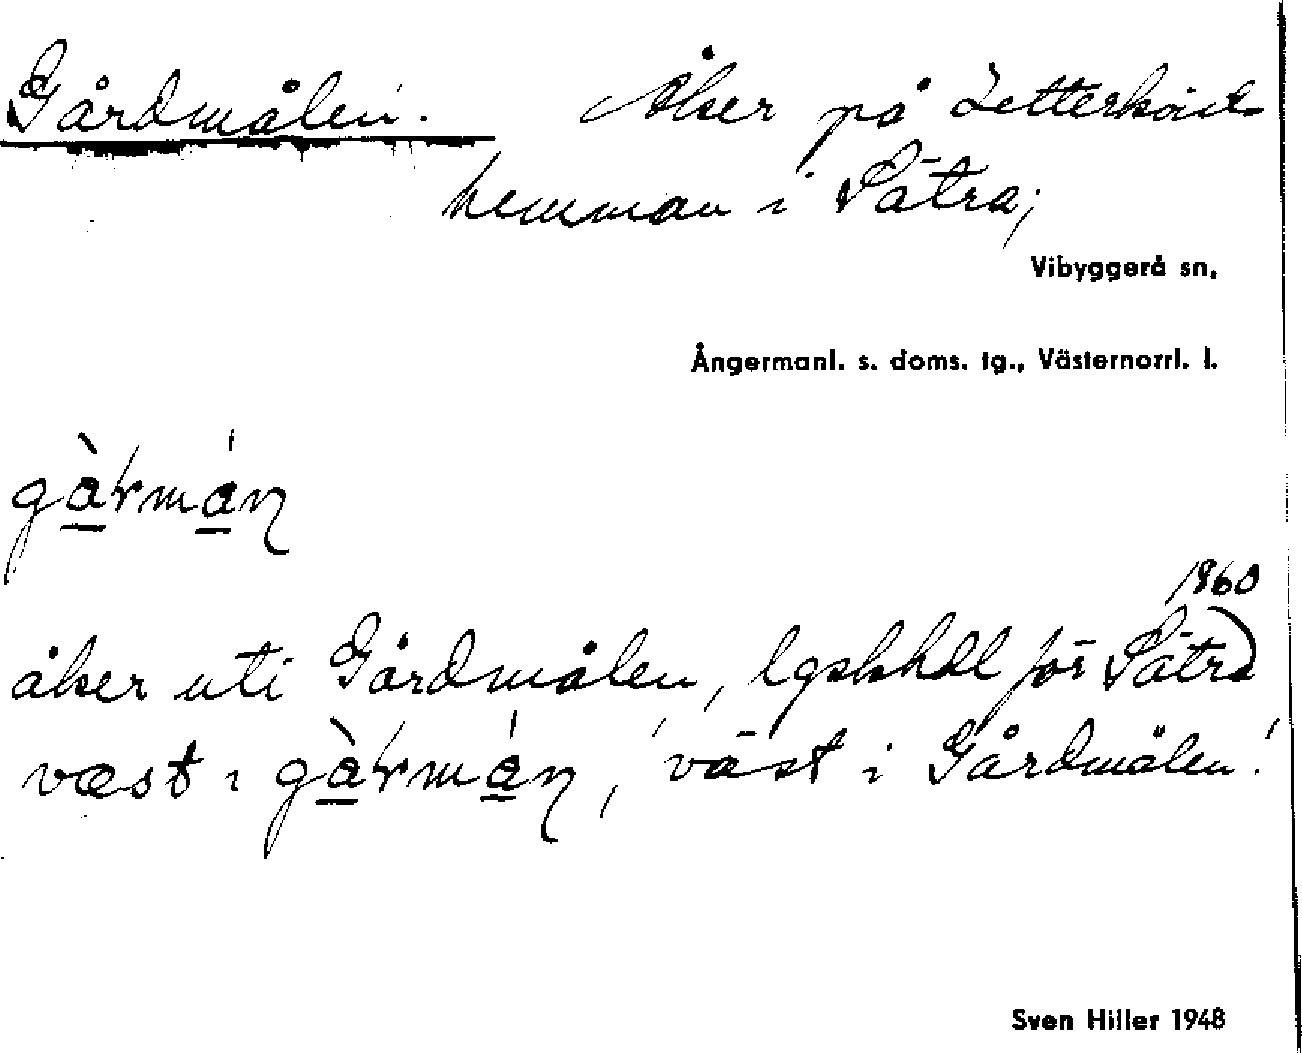 Gårdmålen. Åker på Zetterkvist
hemman i Sätra;
Vibyggerå sn,
Ångermanl. s. doms. tg., Västernorrl. l.
gàrmán
1860
åker uti Gårdmålen, lgskhdl för Sätra
væst i gàrmán, 'väst i Gårdmålen.'
Sven Hiller 1948